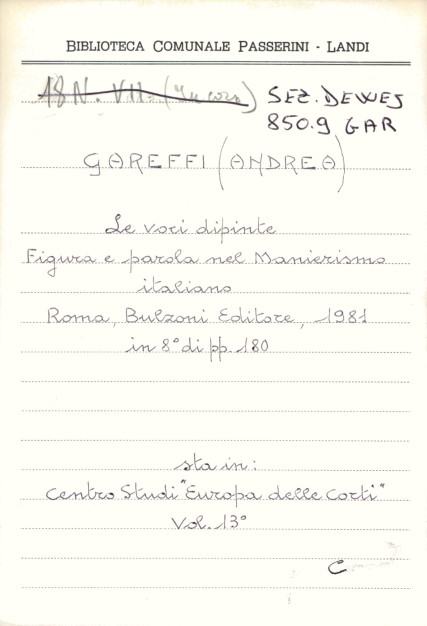 BIBLIOTECA COMUNALE PASSERINI - LANDI
18 N. VII. (In corso) SEZ. DEWEY
850.9 GAR
GAREFFI (ANDREA)
Le voci dipinte
Figura e parola nel Manierismo
italiano
Roma, Bulzoni Editore, 1981
in 8° di pp. 180
sta in:
Centro Studi "Europa delle Corti"
Vol. 13°
C